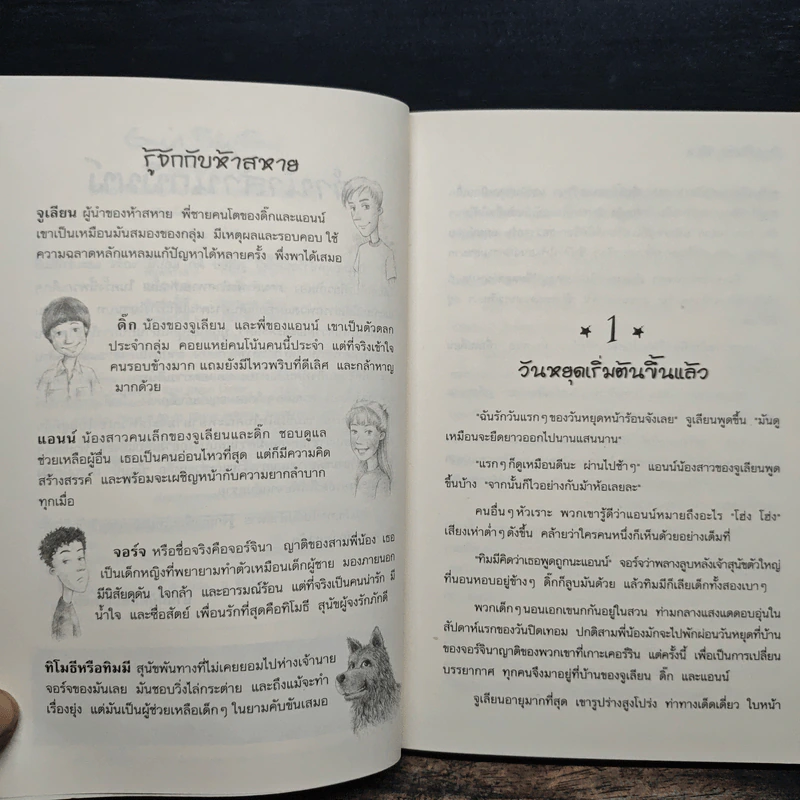 รู้จักกับห้าสหาย
จูเลียน ผู้นำของห้าสหาย พี่ชายคนโตของดิ๊กและแอนน์
เขาเป็นเหมือนมันสมองของกลุ่ม มีเหตุผลและรอบคอบ ใช้
ความฉลาดหลักแหลมแก้ปัญหาได้หลายครั้ง พึ่งพาได้เสมอ
ดิ๊ก น้องของจูเลียน และพี่ของแอนน์ เขาเป็นตัวตลก
ประจำกลุ่ม คอยแหย่คนโน้นคนนี้ประจำ แต่ที่จริงเข้าใจ
คนรอบข้างมาก แถมยังมีไหวพริบที่ดีเลิศ และกล้าหาญ
มากด้วย
แอนน์ น้องสาวคนเล็กของจูเลียนและดิ๊ก ชอบดูแล
ช่วยเหลือผู้อื่น เธอเป็นคนอ่อนไหวที่สุด แต่ก็มีความคิด
สร้างสรรค์ และพร้อมจะเผชิญหน้ากับความยากลำบาก
ทุกเมื่อ
จอร์จ หรือชื่อจริงคือจอร์จินา ญาติของสามพี่น้อง เธอ
เป็นเด็กหญิงที่พยายามทำตัวเหมือนเด็กผู้ชาย มองภายนอก
มีนิสัยดุดัน ใจกล้า และอารมณ์ร้อน แต่ที่จริงเป็นคนน่ารัก มี
น้ำใจ และซื่อสัตย์ เพื่อนรักที่สุดคือทิโมธี สุนัขผู้จงรักภักดี
ทิโมธีหรือทิมมี สุนัขพันทางที่ไม่เคยยอมไปห่างเจ้านาย
จอร์จของมันเลย มันชอบวิ่งไล่กระต่าย และถึงแม้จะทำ
เรื่องยุ่ง แต่มันเป็นผู้ช่วยเหลือเด็กๆ ในยามคับขันเสมอ
1
วันหยุดเริ่มต้นขึ้นแล้ว
"ฉันรักวันแรกๆ ของวันหยุดหน้าร้อนจังเลย" จูเลียนพูดขึ้น "มันดู
เหมือนจะยืดยาวออกไปนานแสนนาน"
"แรกๆ ก็ดูเหมือนดีนะ ผ่านไปช้าๆ" แอนน์น้องสาวของจูเลียนพูด
ขึ้นบ้าง "จากนั้นก็ไวอย่างกับม้าห้อเลยละ"
คนอื่นๆ หัวเราะ พวกเขารู้ดีว่าแอนน์หมายถึงอะไร "โฮ่ง โฮ่ง"
เสียงเห่าต่ำๆ ดังขึ้น คล้ายว่าใครคนหนึ่งก็เห็นด้วยอย่างเต็มที่
"ทิมมีคิดว่าเธอพูดถูกนะแอนน์" จอร์จว่าพลางลูบหลังเจ้าสุนัขตัวใหญ่
ที่นอนหอบอยู่ข้างๆ ดิ๊กก็ลูบมันด้วย แล้วทิมมีก็เลียเด็กทั้งสองเบาๆ
พวกเด็กๆ นอนเอกเขนกกันอยู่ในสวน ท่ามกลางแสงแดดอบอุ่นใน
สัปดาห์แรกของวันปิดเทอม ปกติสามพี่น้องมักจะไปพักผ่อนวันหยุดที่บ้าน
ของจอร์จินาญาติของพวกเขาที่เกาะเคอร์ริน แต่ครั้งนี้ เพื่อเป็นการเปลี่ยน
บรรยากาศ ทุกคนจึงมาอยู่ที่บ้านของจูเลียน ดิ๊ก และแอนน์
จูเลียนอายุมากที่สุด เขารูปร่างสูงโปร่ง ท่าทางเด็ดเดี่ยว ใบหน้า